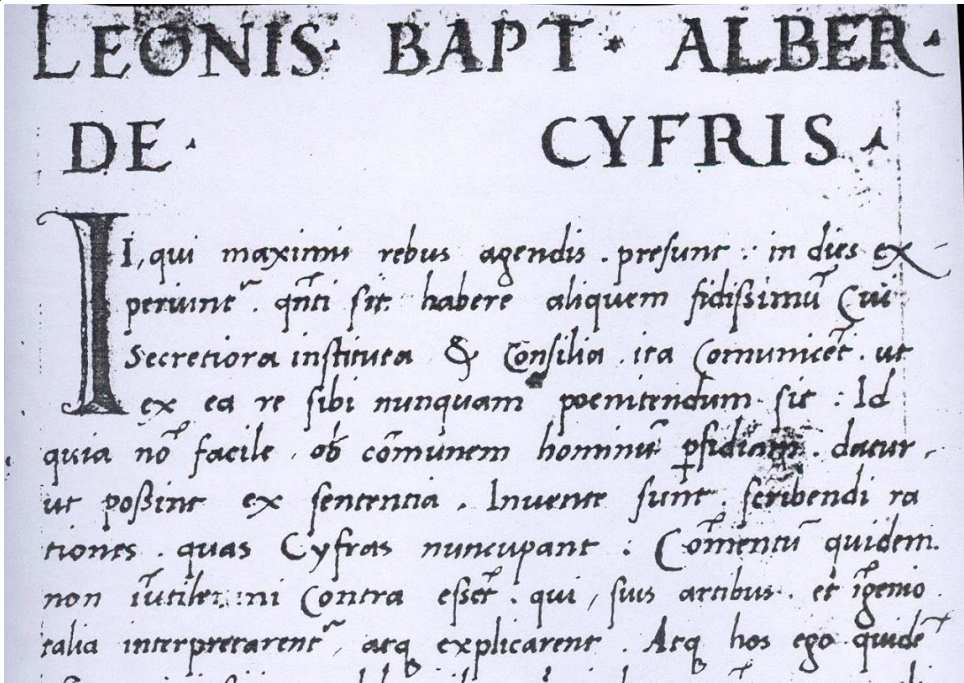 LEONIS · BAPT · ALBER ·
DE · CYFRIS ·
II, qui maximis rebus agendis . presunt : in dies ex
periunt̃ . qñti sit habere aliquem fidissimũ Cui
Secretiora instituta & Consilia . ita Comunicẽt . ut
ex ea re sibi nunquam poenitendum sit : Id
quia nõ facile . ob cõmunem hominũ ꝑfidiam . datur ,
ut possint ex sententia . Invente sunt . scribendi ra
tiones . quas Cyfras nuncupant : Cõmentũ quidem
non ĩutile : ni Contra essẽt . qui , suis artibus . et ĩgenio
talia interpretarent̃ , atq explicarent . Atq hos ego quidẽ